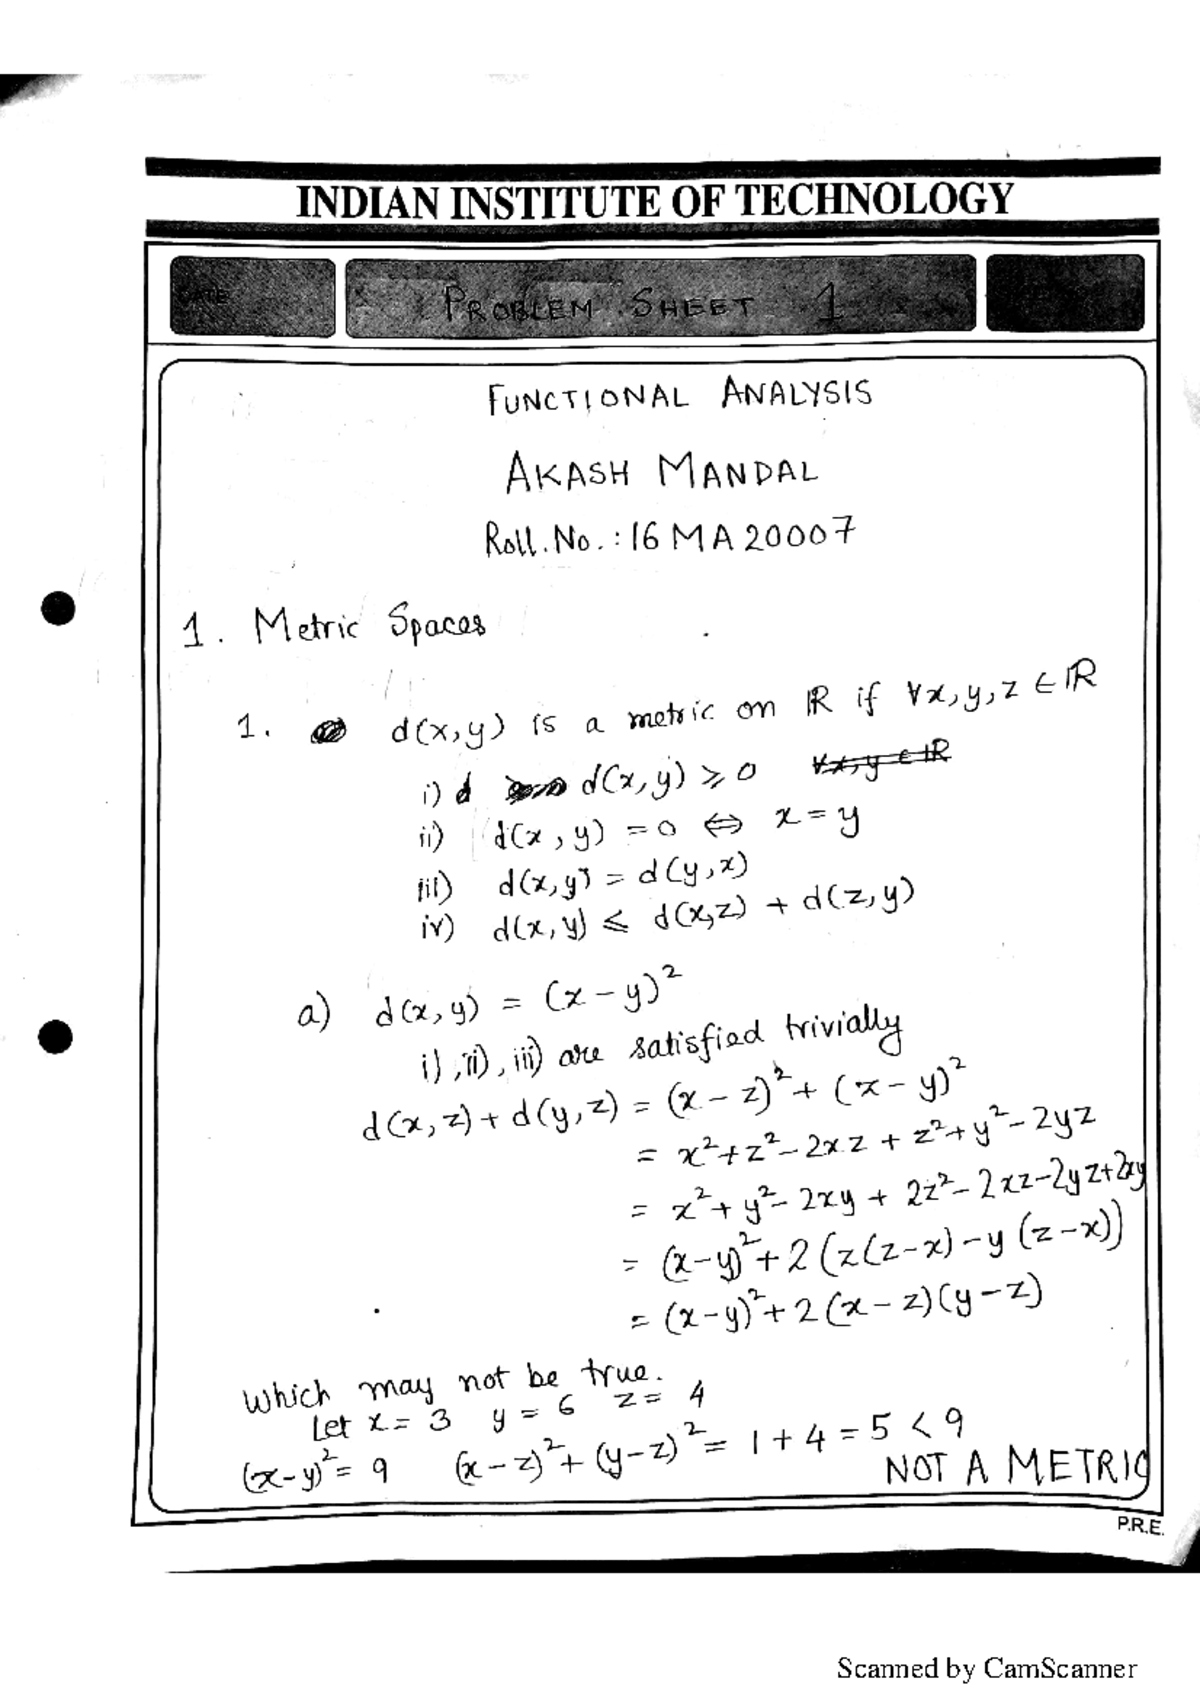 INDIAN INSTITUTE OF TECHNOLOGY
DATE
PROBLEM SHEET 1
FUNCTIONAL ANALYSIS
AKASH MANDAL
Roll.No.:16MA20007
1. Metric Spaces
1. d(x,y) is a metric on ℝ if ∀x,y,z ∈ ℝ
i) d d(x,y) ⩾ 0 ∀x,y ∈ ℝ
ii) d(x,y) = 0 ⇔ x = y
iii) d(x,y) = d(y,x)
iv) d(x,y) ⩽ d(x,z) + d(z,y)
a) d(x,y) = (x-y)²
i), ii), iii) are satisfied trivially
d(x,z) + d(y,z) = (x-z)² + (x-y)²
= x²+z²-2xz + z²+y²-2yz
= x²+y²-2xy + 2z²-2xz-2yz+2xy
= (x-y)²+2(z(z-x)-y(z-x))
= (x-y)²+2(x-z)(y-z)
Which may not be true.
Let x=3 y=6 z=4
(x-y)²=9 (x-z)²+(y-z)²=1+4=5<9
NOT A METRIC
P.R.E.
Scanned by CamScanner